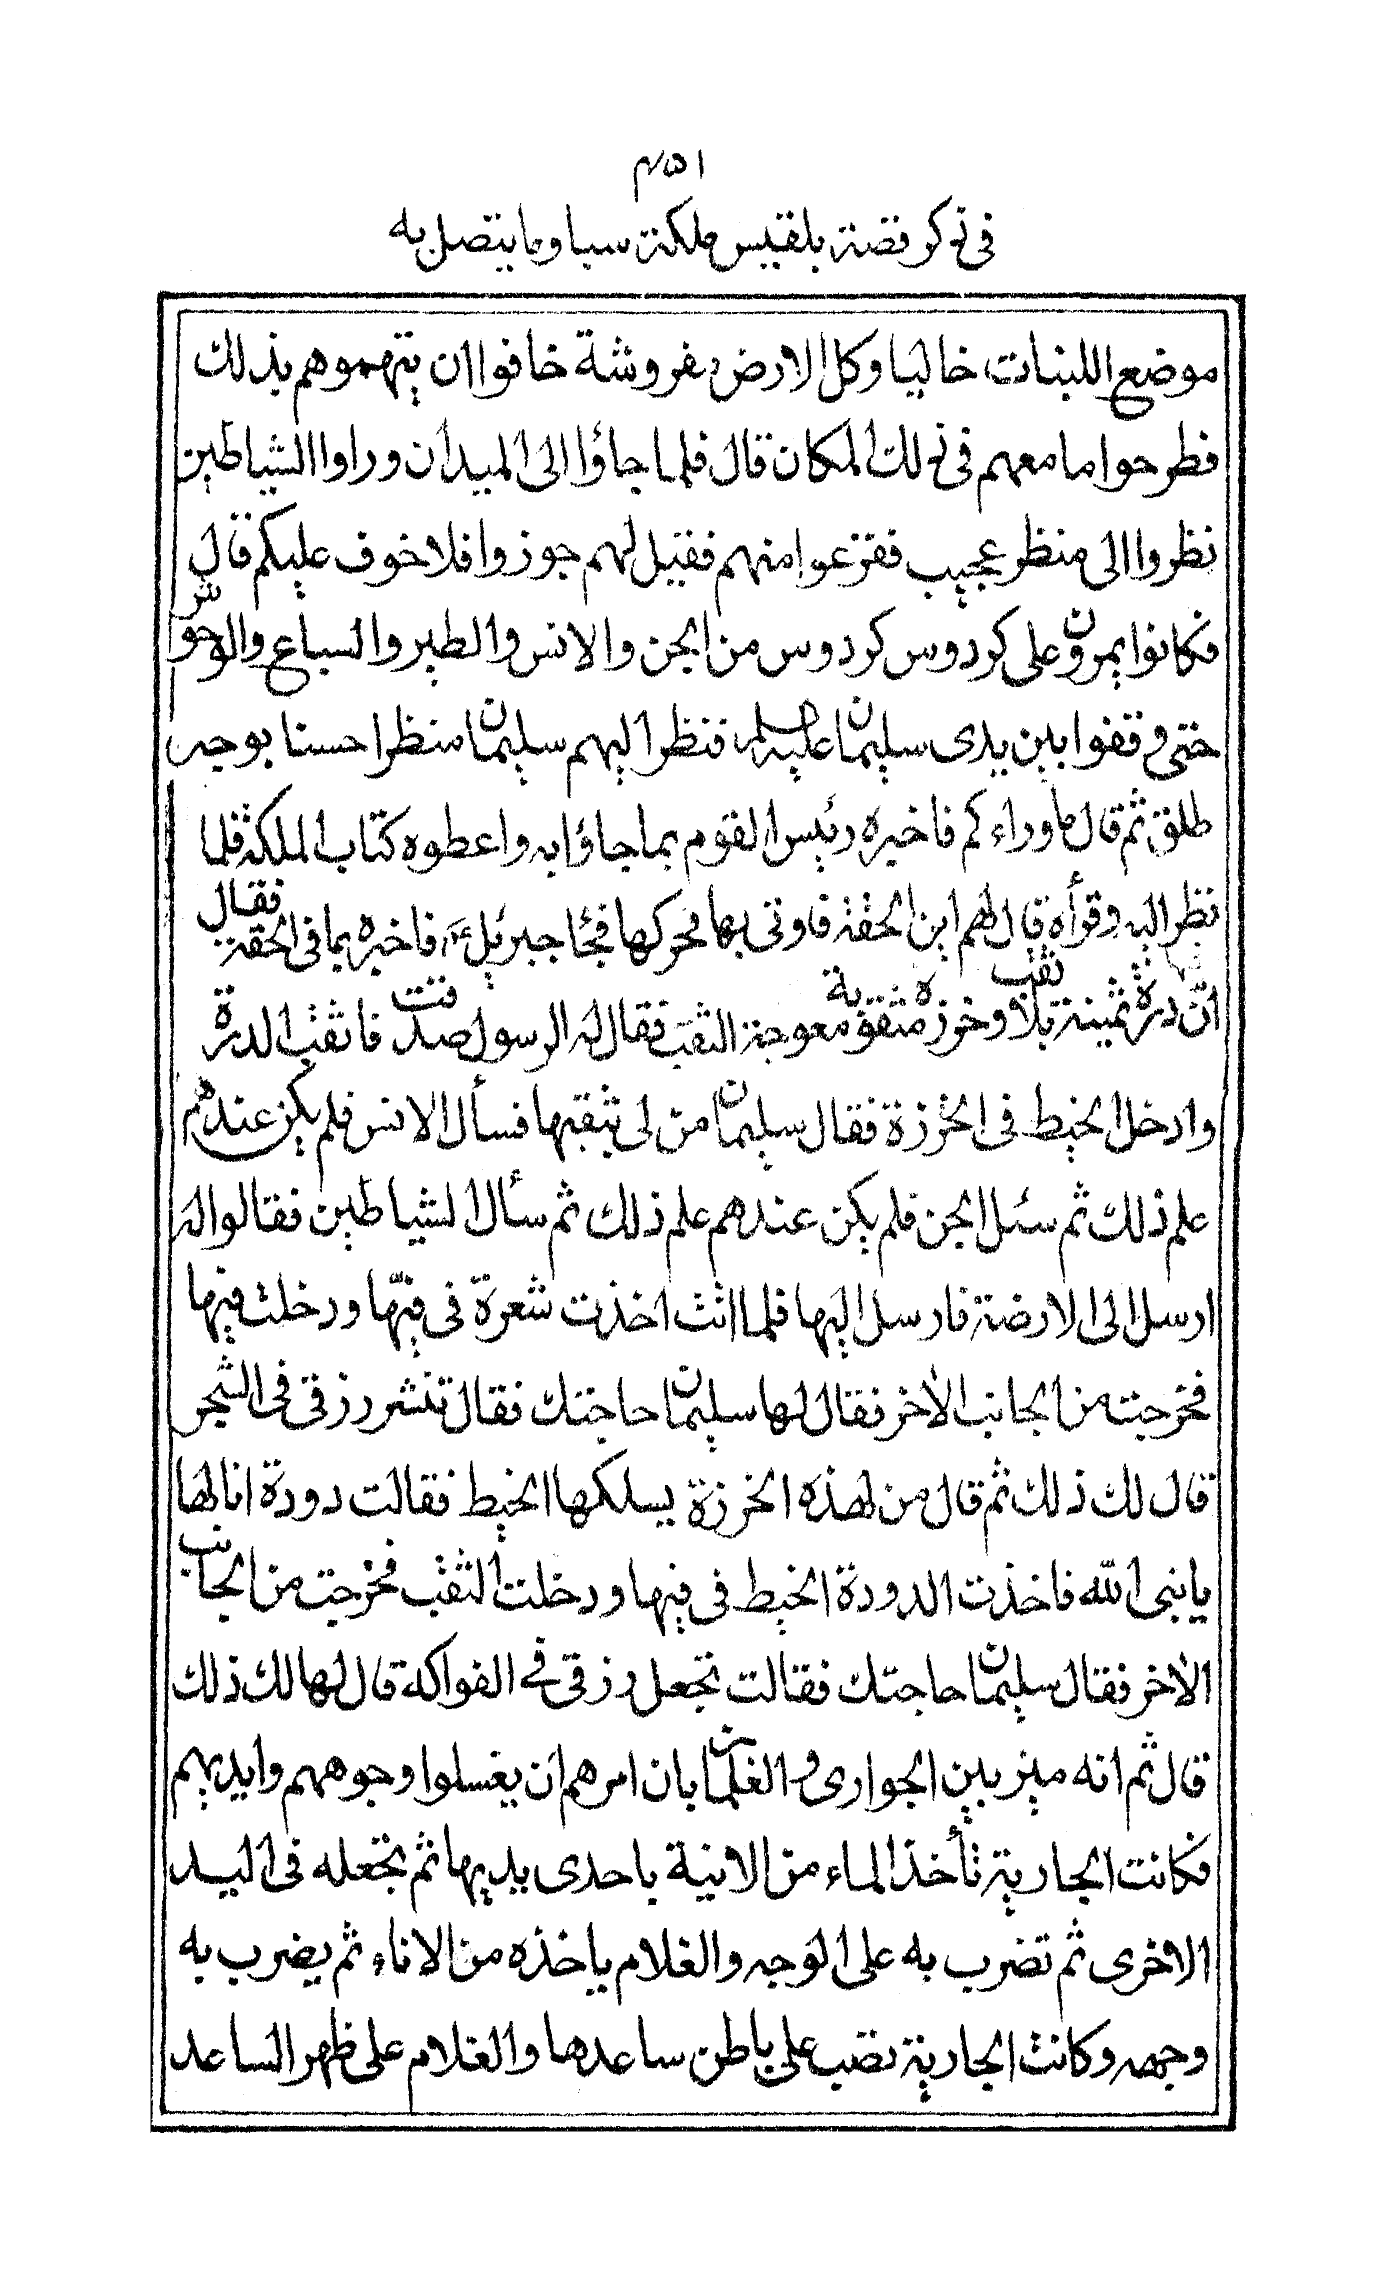 ٤٥١
فى ذكر قصة بلقيس ملكة سبا وما يتصل به
موضع اللبنات خاليا وكل الارض مفروشة خافوا ان يتهموهم بذلك
فطرحوا ما معهم فى ذلك المكان قال فلما جاؤا الى الميدان وراوا الشياطين
نظروا الى منظر عجيب ففزعوا منهم فقيل لهم جوزوا فلا خوف عليكم قال
فكانوا يمرون على كردوس كردوس من الجن والانس والطير والسباع والوحوش
حتى وقفوا بين يدى سليمان عليه السلم فنظر اليهم سليمان منظرا حسنا بوجه
طلق ثم قال ما وراءكم فاخبره رئيس القوم بما جاؤا به واعطوه كتاب الملكة فلما
نظر اليه وقرأه قال لهم اين الحقة فاوتى بها فحركها فجا جبرئيل ع فاخبره بما فى الحقة فقال
ان درة ثمينة بلا ثقب وخرزة مثقوبة معوجة الثقب فقال له الرسول صدقت فاثقب الدرة
وادخل الخيط فى الخرزة فقال سليمان من لى بثقبها فسأل الانس فلم يكن عندهم
علم ذلك ثم سئل الجن فلم يكن عندهم علم ذلك ثم سأل الشياطين فقالوا له
ارسل الى الارضة فارسل اليها فلما اتت اخذت شعرة فى فيها ودخلت فيها
فخرجت من الجانب الاخر فقال لها سليمان حاجتك فقال تنشر رزقى فى الشجر
قال لك ذلك ثم قال من لهذه الخرزة يسلكها الخيط فقالت دودة انا لها
يا نبى الله فاخذت الدودة الخيط فى فيها ودخلت الثقب فخرجت من الجانب
الاخر فقال سليمان حاجتك فقالت تجعل رزقى فى الفواكه قال لها لك ذلك
قال ثم انه ميز بين الجوارى والغلمان بان امرهم ان يغسلوا وجوههم وايديهم
فكانت الجارية تأخذ الماء من الانية باحدى يديها ثم تجعله فى اليد
الاخرى ثم تضرب به على الوجه والغلام ياخذه من الاناء ثم يضرب به
وجهه وكانت الجارية تصب على باطن ساعدها والغلام على ظهر الساعد